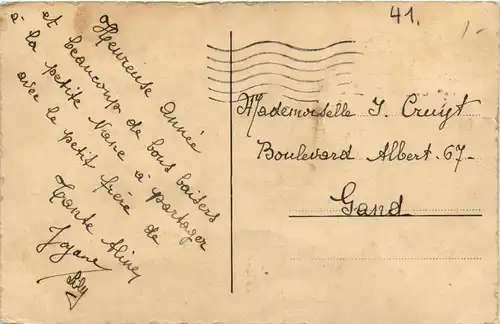 41.
1-
Heureuse année
et beaucoup de bons baisers
à la petite Nane à partager
avec le petit frère de
Tante Aline
Mademoiselle J. Cruyt
Boulevard Albert. 67-
Gand